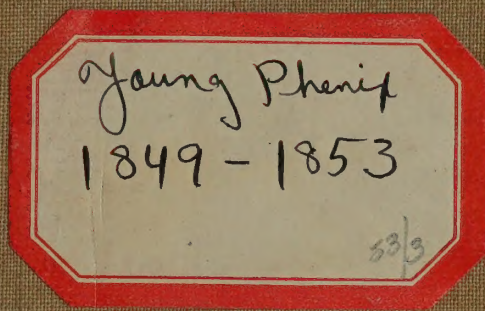 Young Phenix
1849 - 1853
53/3